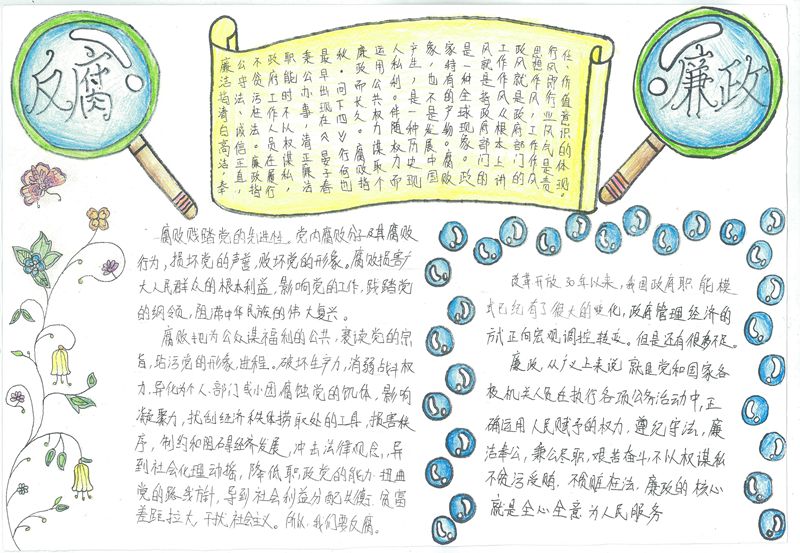 反腐
廉洁指清白高洁,奉
公守法、诚信正直,
不贪污枉法。廉政指
政府工作人员在履行
职能时不以权谋私,
秉公办事,清正廉洁
最早出现在《晏子春
秋。问下四》行何也
廉政而长久。腐败指
运用公共权力谋取个
人私利。伴随权力而
产生,是一种历史现
象,也不是发展中国
家特有的产物。腐败
是一种全球现象。政
风就是指政府部门的
工作作风从根本上讲
政风就是政府部门的
思想作风,工作作风
行风即行业风气是责
任、价值意识的体现。
廉政
腐败践踏党的先进性。党内腐败分子及其腐败
行为,损坏党的声誉,败坏党的形象。腐败损害广
大人民群众的根本利益,影响党的工作,践踏党
的纲领,阻滞中华民族的伟大复兴。
腐败把为公众谋福利的公共,亵渎党的宗
旨,玷污党的形象,进程。破坏生产力,消弱战斗权
力,异化为个人、部门或小团腐蚀党的肌体,影响
凝聚力,扰乱经济秩序捞取处的工具,损害秩
序,制约和阻碍经济发展,冲击法律观念,导
到社会伦理动摇,降低职政党的能力、扭曲
党的路线方针,导到社会利益分配失衡、贫富
差距拉大,干扰社会主义。所以,我们要反腐。
改革开放30年以来,我国政府职能模
式已经有了很大的变化,政府管理经济的
方式正向宏观调控转变。但是还有很多不足。
廉政,从广义上来说就是党和国家各
级机关人员在执行各项公务活动中,正
确运用人民赋予的权力,遵纪守法,廉
洁奉公,秉公尽职,艰苦奋斗,不以权谋私
不贪污受贿,不贪赃枉法。廉政的核心
就是全心全意为人民服务